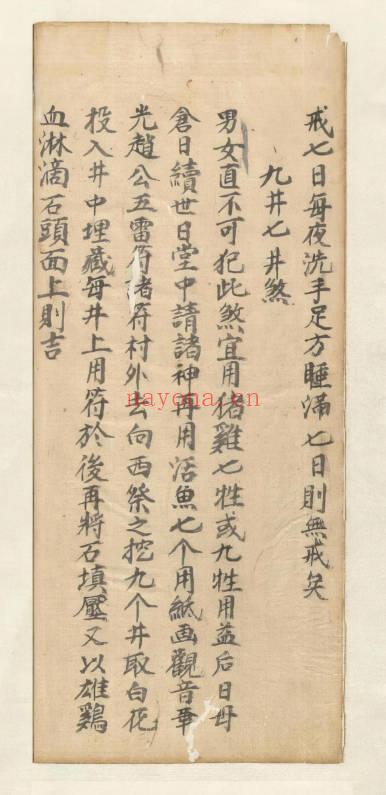 戒七日每夜洗手足方睡滿七日則無戒矣
九井七井煞
男女直不可犯此煞宜用猪雞七牲或九牲用益后日母
倉日續世日堂中請諸神再用活魚七个用紙画觀音華
光趙公五雷符諸符村外去向西祭之挖九个井取白花
投入井中埋藏每井上用符於後再將石填壓又以雄鷄
血淋滴石頭面上則吉
nayona.cn